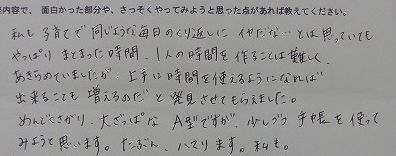 内容で、面白かった部分や、さっそくやってみようと思った点があれば教えてください。
私も子育てで同じような毎日のくり返しに イヤだな…とは思っていても
やっぱり まとまった時間、1人の時間を作ることは難しく、
あきらめていましたが、上手に時間を使えるようになれば
出来ることも 増えるのだと 発見させてもらえました。
めんどくさがり、大ざっぱな A型ですが、少しづつ 手帳を使って
みようと思います。たぶん、ハマります。私も。